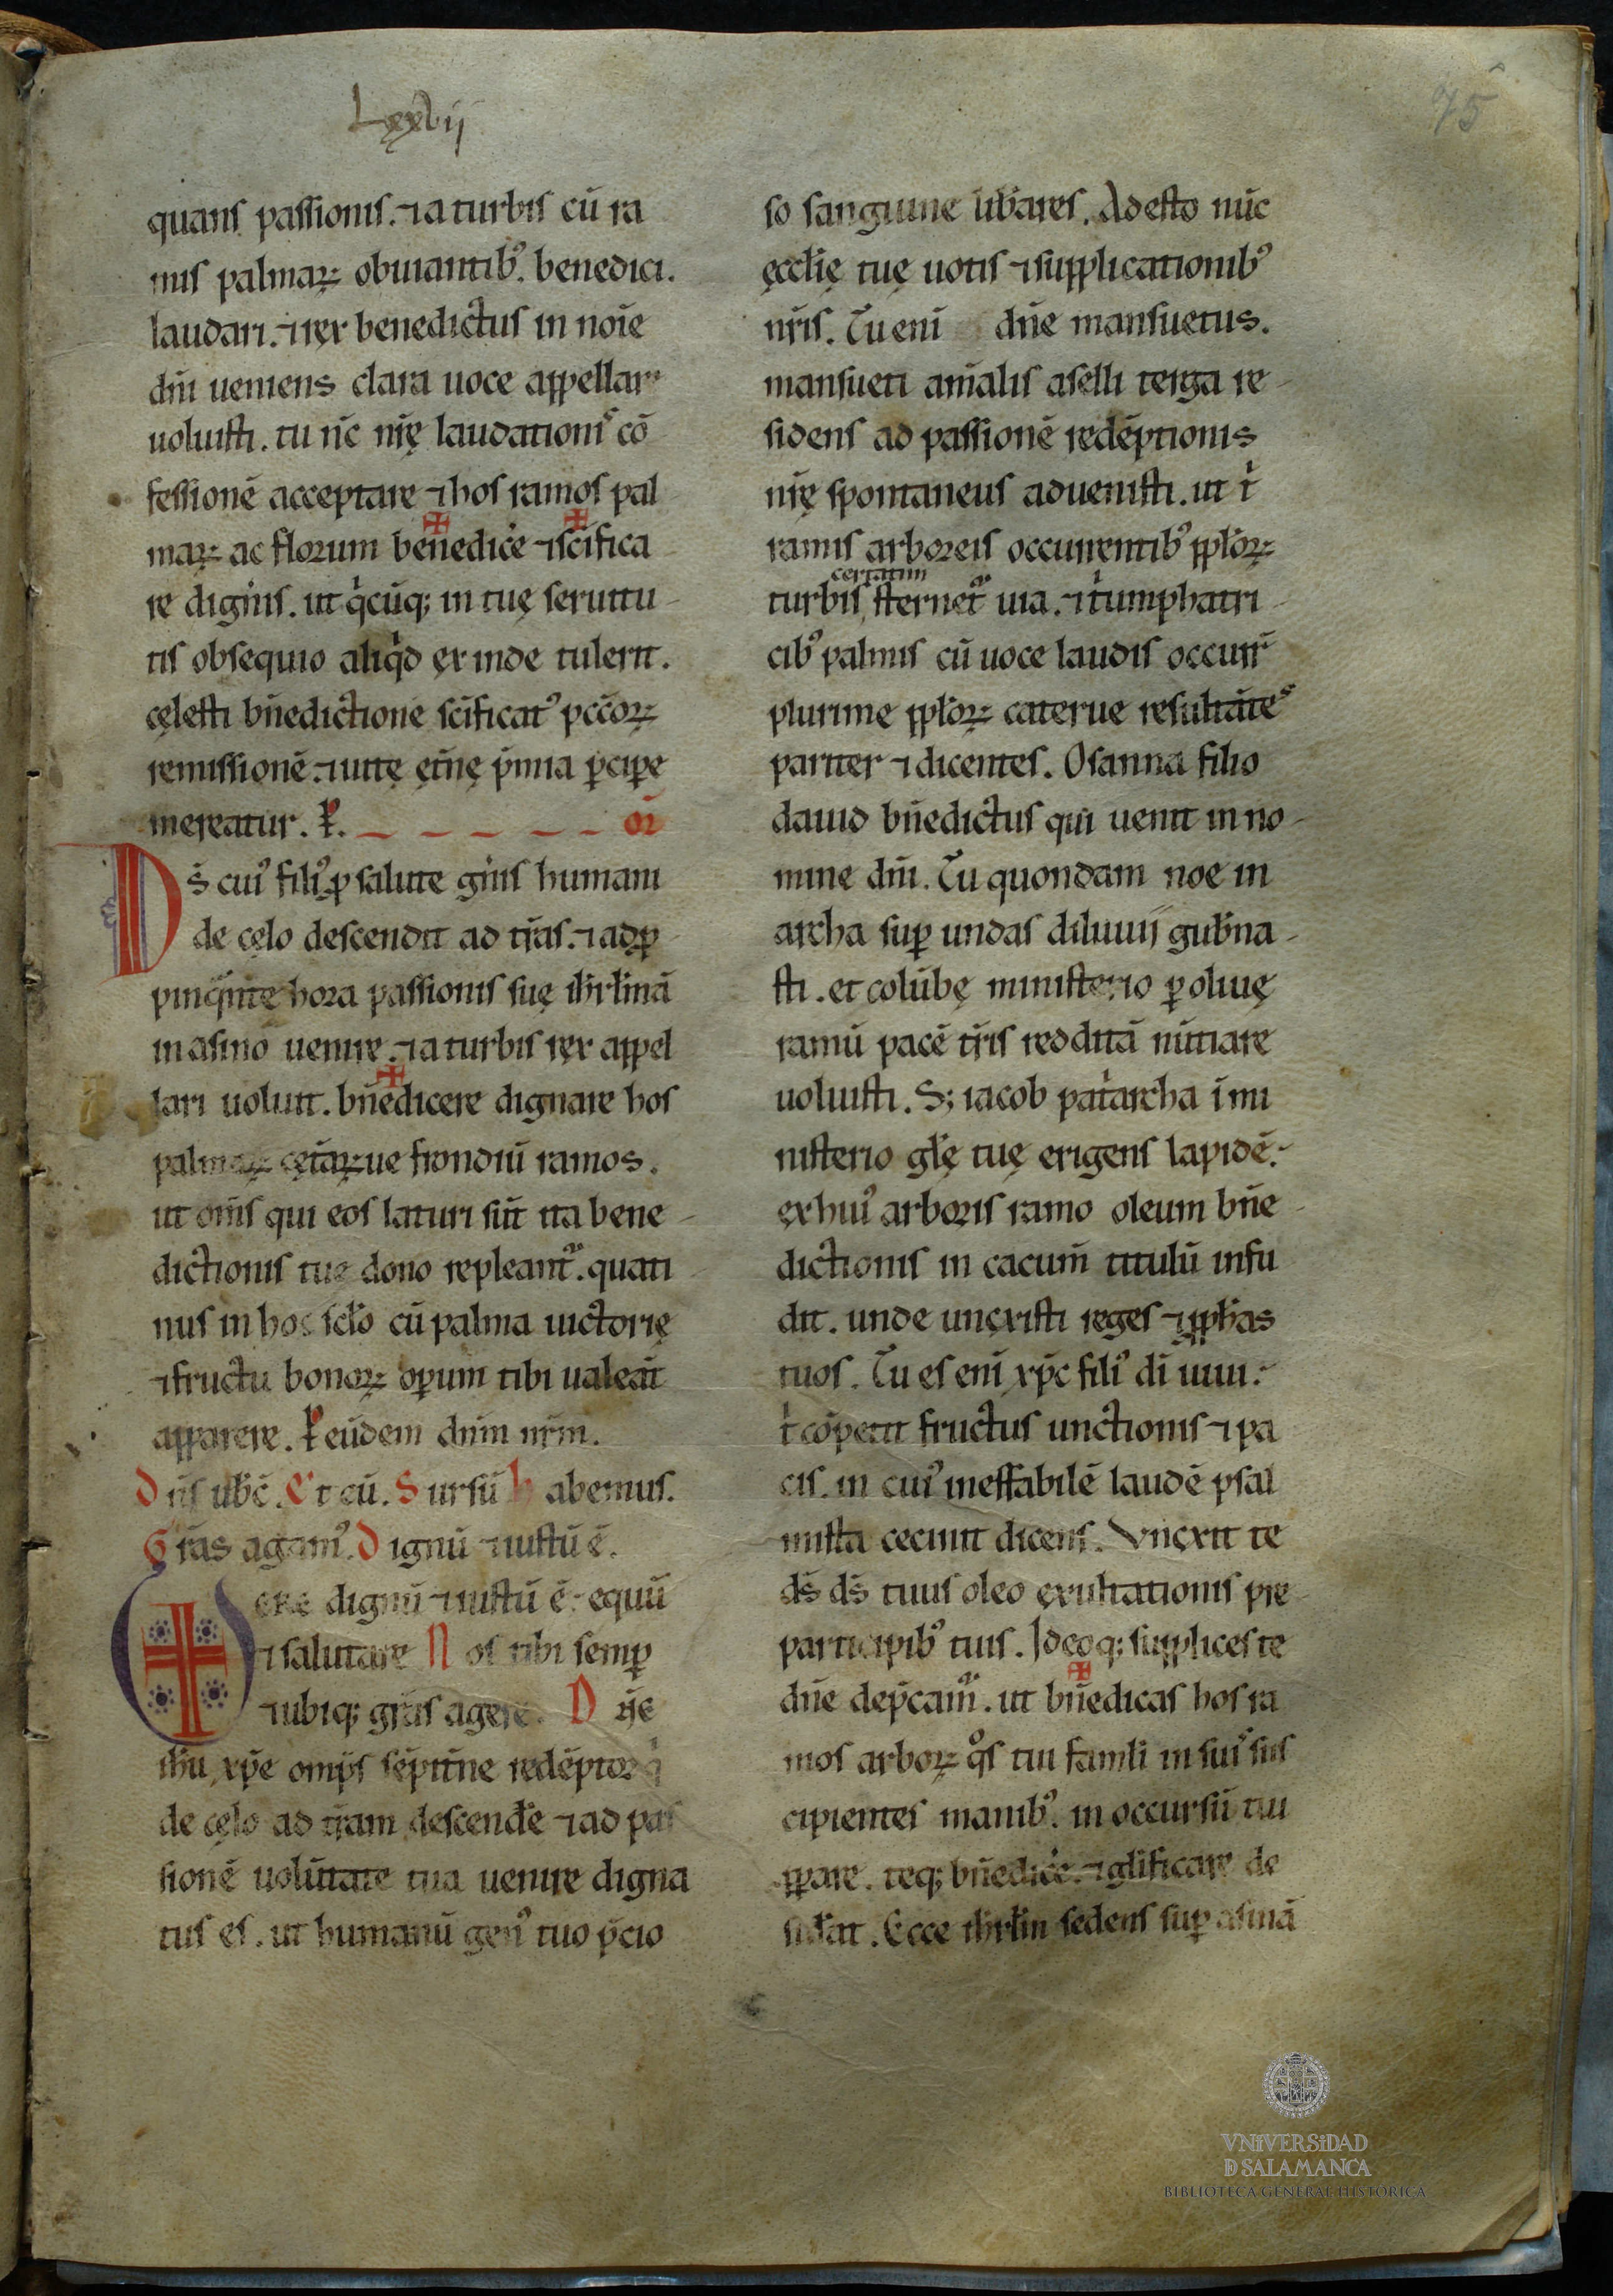 Lxxvij
75
quans passionis. ⁊ a turbis cū ra
mis palmaꝝ obuiantibꝰ. benedici.
laudari. ⁊ rex benedictus in noīe
dn̄i ueniens clara uoce appellari
uoluisti. tu nc̄ nr̄ę laudationis cō
fessionē acceptare ⁊ hos ramos pal
maꝝ ac florum benedice ⁊ scīfica
re digneris. ut qͥcūq; in tuę seruitu-
tis obsequio aliqͥd exinde tulerit.
cęlesti bn̄edictione scīficatꝰ pcc̄oꝝ
remissionē. ⁊ uitę et̄nę p̄mia ꝑcipe
mereatur. P. _ _ _ _ _ _ or̄
Ds̄ cuiꝰ filiꝰ ꝓ salute gn̄is humani
de cęlo descendit ad tr̄as. ⁊ adꝓ-
pinqᵃnte hora passionis suę ihrl̄mā
in asino uenire. ⁊ a turbis rex appel
lari uoluit. bn̄edicere dignare hos
palmaꝝ cętaꝝue frondiū ramos.
ut om̄s qui eos laturi sūt ita bene-
dictionis tuę dono repleant᷑. quati-
nus in hoc sclo cū palma uictorię
⁊ fructu bonoꝝ oꝑum tibi ualeāt
apparere. P eūdem dn̄m nr̄m.
Dn̄s ubc̄. Et cū. Sursū Habemus.
Gr̄as agamꝰ. Dignū ⁊ iustū ē.
VERE dignū ⁊ iustū ē. equū
⁊ salutare Nos tibi semꝑ
⁊ ubiq; gr̄as agere. Dn̄e
ihu xp̄e omp̄s sēpitn̄e redēptor qͥ
de cęlo ad tr̄am descende ⁊ ad pas
sionē uolūtate tua uenire digna
tus es. ut humanū genꝰ tuo p̄cio
so sanguine libares. Adesto nūc
ęccl̄ię tuę uotis ⁊ supplicationibꝰ
nr̄is. Tu enī dn̄e mansuetus.
mansueti anīalis aselli terga re-
sidens ad passionē redēptionis
nr̄ę spontaneus aduenisti. ut tͥ
ramis arboreis occurrentibꝰ pploꝝ
certatim
turbis, sternet᷑ uia. ⁊ tͥumphatri-
cibꝰ palmis cū uoce laudis occurr̄
plurime pploꝝ caterue resultātes
pariter ⁊ dicentes. Osanna filio
dauid bn̄edictus qui uenit in no-
mine dn̄i. Tu quondam noe in
archa suꝑ undas diluuij gub̄na-
sti. et colūbę ministerio ꝑ oliuę
ramū pacē tr̄is redditā nūtiare
uoluisti. S; iacob patͥarcha ī mi
nisterio gl̄ę tuę erigens lapidē.
ex huiꝰ arboris ramo oleum bn̄e-
dictionis in cacum̄ titulū infu
dit. unde unxisti reges ⁊ ꝓphas
tuos. Tu es enī xp̄c filiꝰ dī uiui.
tͥ cōpetit fructus unctionis ⁊ pa
cis. in cuiꝰ ineffabilē laudē psal
mista cecinit dicens. Vnxit te
ds̄ ds̄ tuus oleo exultationis pre
participibꝰ tuis. Idcoq; supplices te
dn̄e dep̄cam᷑. ut bn̄edicas hos ra
mos arboꝝ qͦs tui famli in suis sus
cipientes manibꝰ. in occursū tui
ꝓpare. teq; bn̄edice. ⁊ glificare de
sidat. Ecce ihrlm̄ sedens suꝑ asinā
VNiVERSiDAD
D SALAMANCA
BIBLIOTECA GENERAL HISTÓRICA